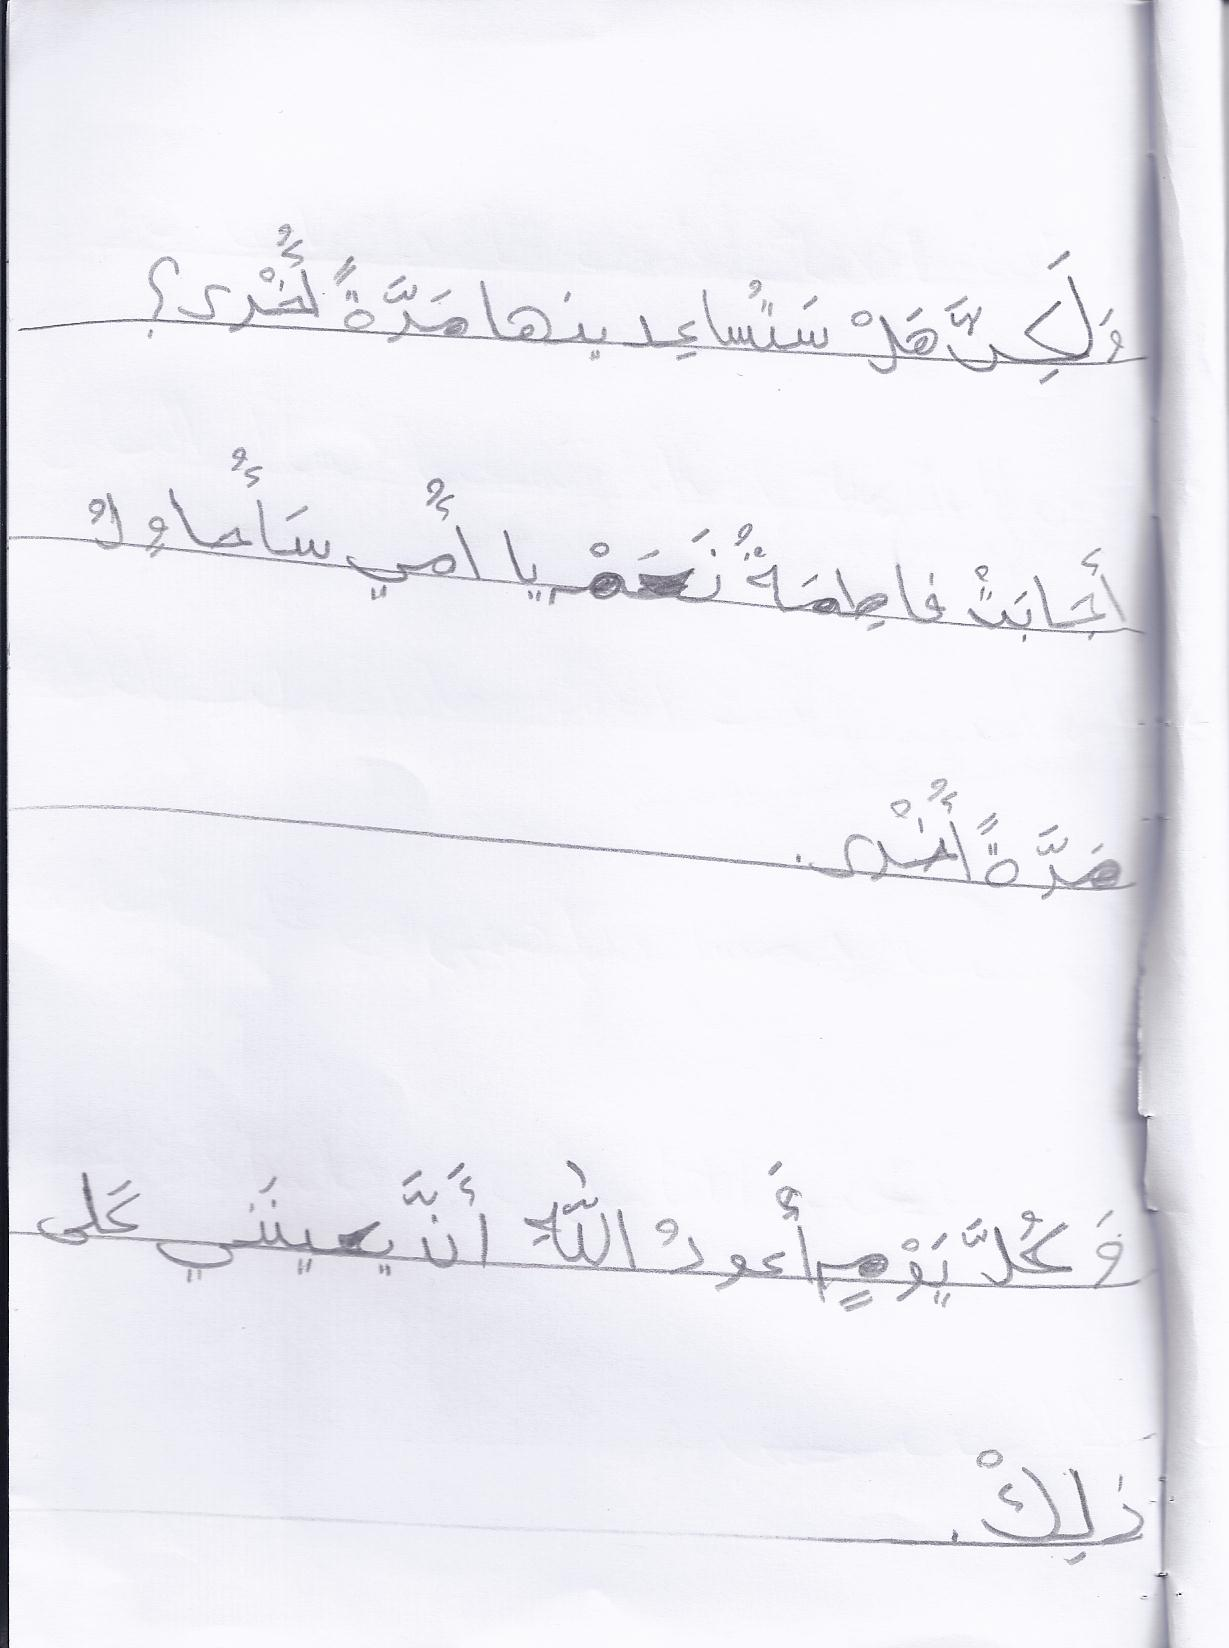 وَلَكِنَّ هَلْ سَتُساعِدينها مَرَّةً أُخْرى؟
أَجَابَتْ فاطِمَةُ نَعَمْ يا أُمي سَأُحاوِلُ
مَرَّةً أُخْرى.
وَ كُلَّ يَوْمٍ أَعودُ اللَّهِ أَنَّ يعينَني عَلى
ذلِكْ.